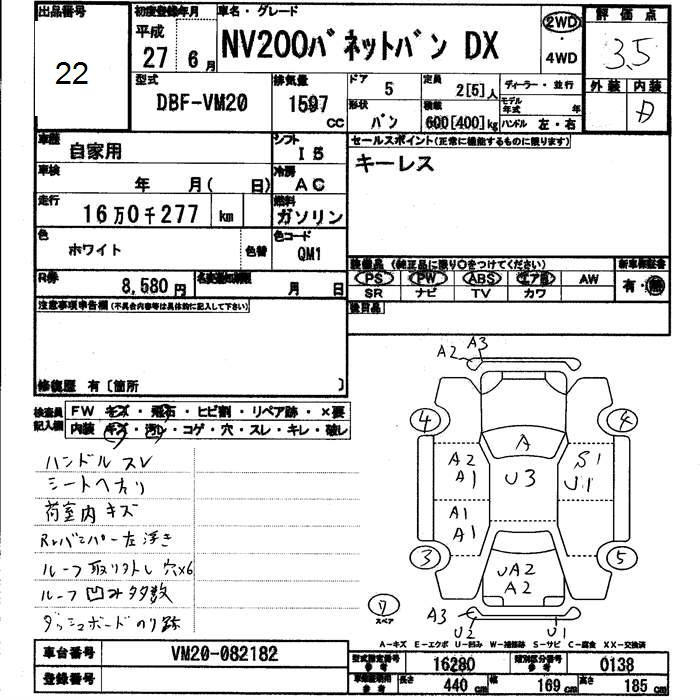 出品番号 22
初度登録年月 平成 27 年 6 月
車名・グレード NV200バネットバン DX
2WD 4WD
評価点 3.5
外装 内装 D
型式 DBF-VM20
排気量 1597 CC
ドア 5
形状 バン
定員 2[5]人
積載 600[400]kg
ディーラー・並行
モデル年式 年
ハンドル 左・右
車歴 自家用
シフト I 5
セールスポイント(正常に機能するものに限ります)
キーレス
車検 年 月( 日)
冷房 AC
走行 16万0千277 km
燃料 ガソリン
色 ホワイト 色替
色コード QM1
装備品 (純正品に限り〇をつけてください)
PS PW ABS エア B AW
SR ナビ TV カワ
新車保証書 有・無
R券 8,580円
名義変更期限 月 日
後日品
注意事項申告欄(不具合内容等は具体的に記入して下さい)
修復歴 有〔箇所 〕
検査員記入欄
FW キズ・飛石・ヒビ割・リペア跡・×要
内装 キズ・汚レ・コゲ・穴・スレ・キレ・破レ
ハンドルスレ
シートヘタリ
荷室内キズ
Rrバンパー左浮き
ルーフ取り外し穴×6
ルーフ凹み多数
ダッシュボードのり跡
A2 A3
4 4
A
A2 A1 U3 S1 U1
A1 A1
3 5
UA2 A2
7 スペア
A3 U2 U1
A-キズ E-エクボ U-凹み W-補修跡 S-サビ C-腐食 XX-交換済
車台番号 VM20-082182
型式指定番号 参考 16280
類別区分番号 参考 0138
登録番号
長さ 440 cm 幅 169 cm 高さ 185 cm